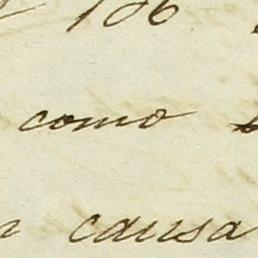 106
como
causa